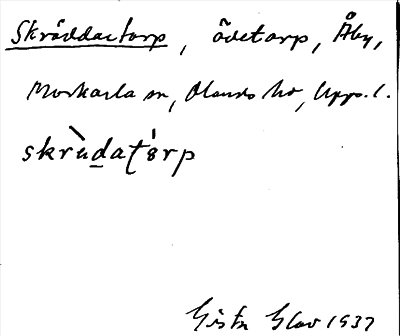 Skräddartorp, ödetorp, Åby,
Morkarla sn, Olands hd, Upps. l.
skrὰdat̯ɑ̍rp
Gösta Olov 1937